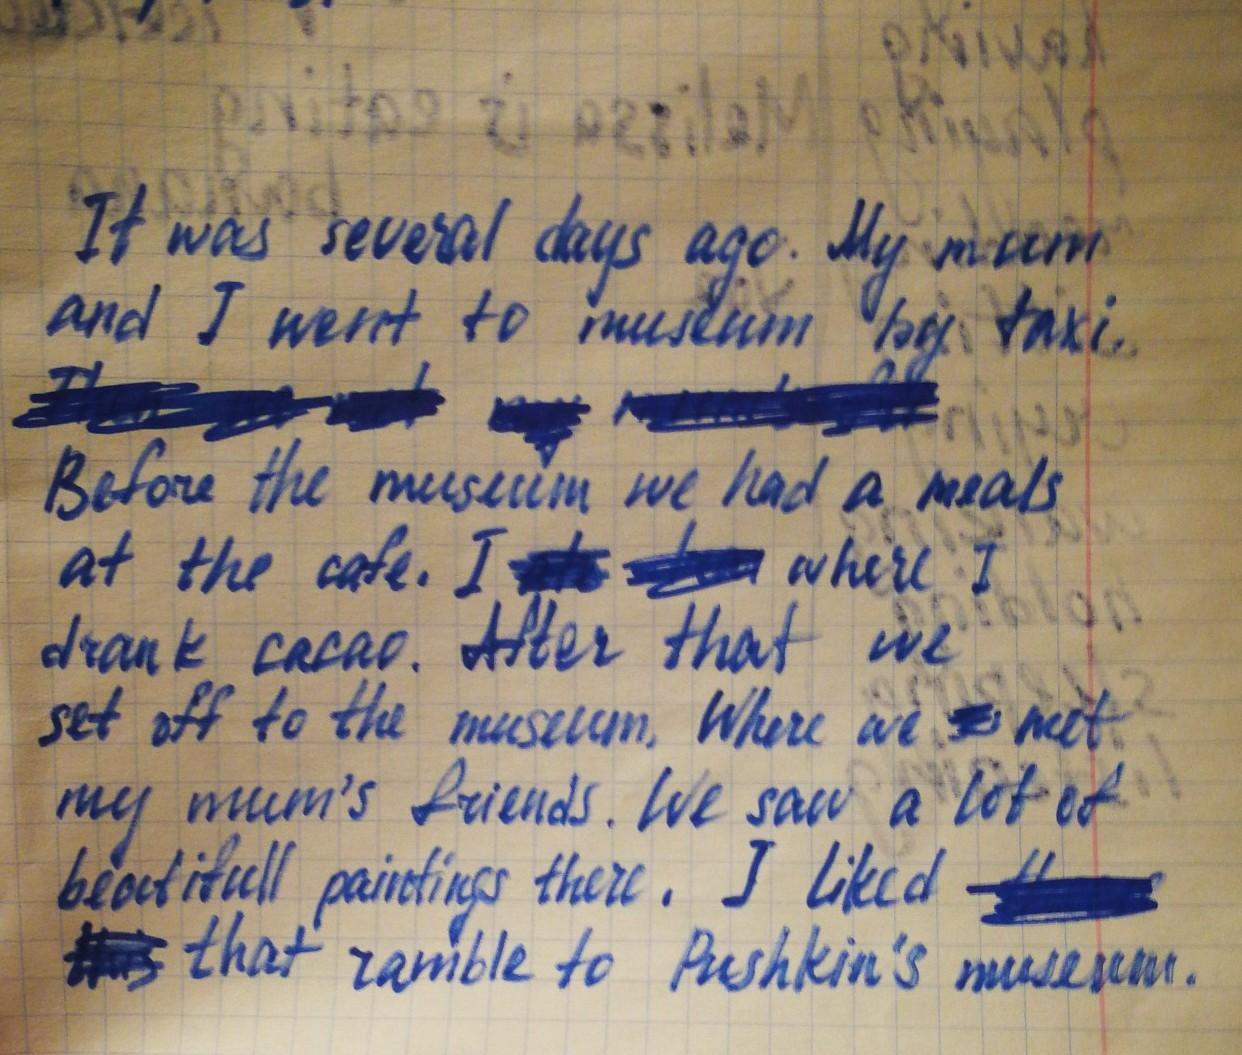 It was several days ago. My mum
and I went to museum by taxi.
Before the museum we had a meals
at the cafe. I where I
drank cacao. After that we
set off to the museum. Where we met
my mum's friends. We saw a lot of
beatifull paintings there. I liked
that ramble to Pushkin's museum.